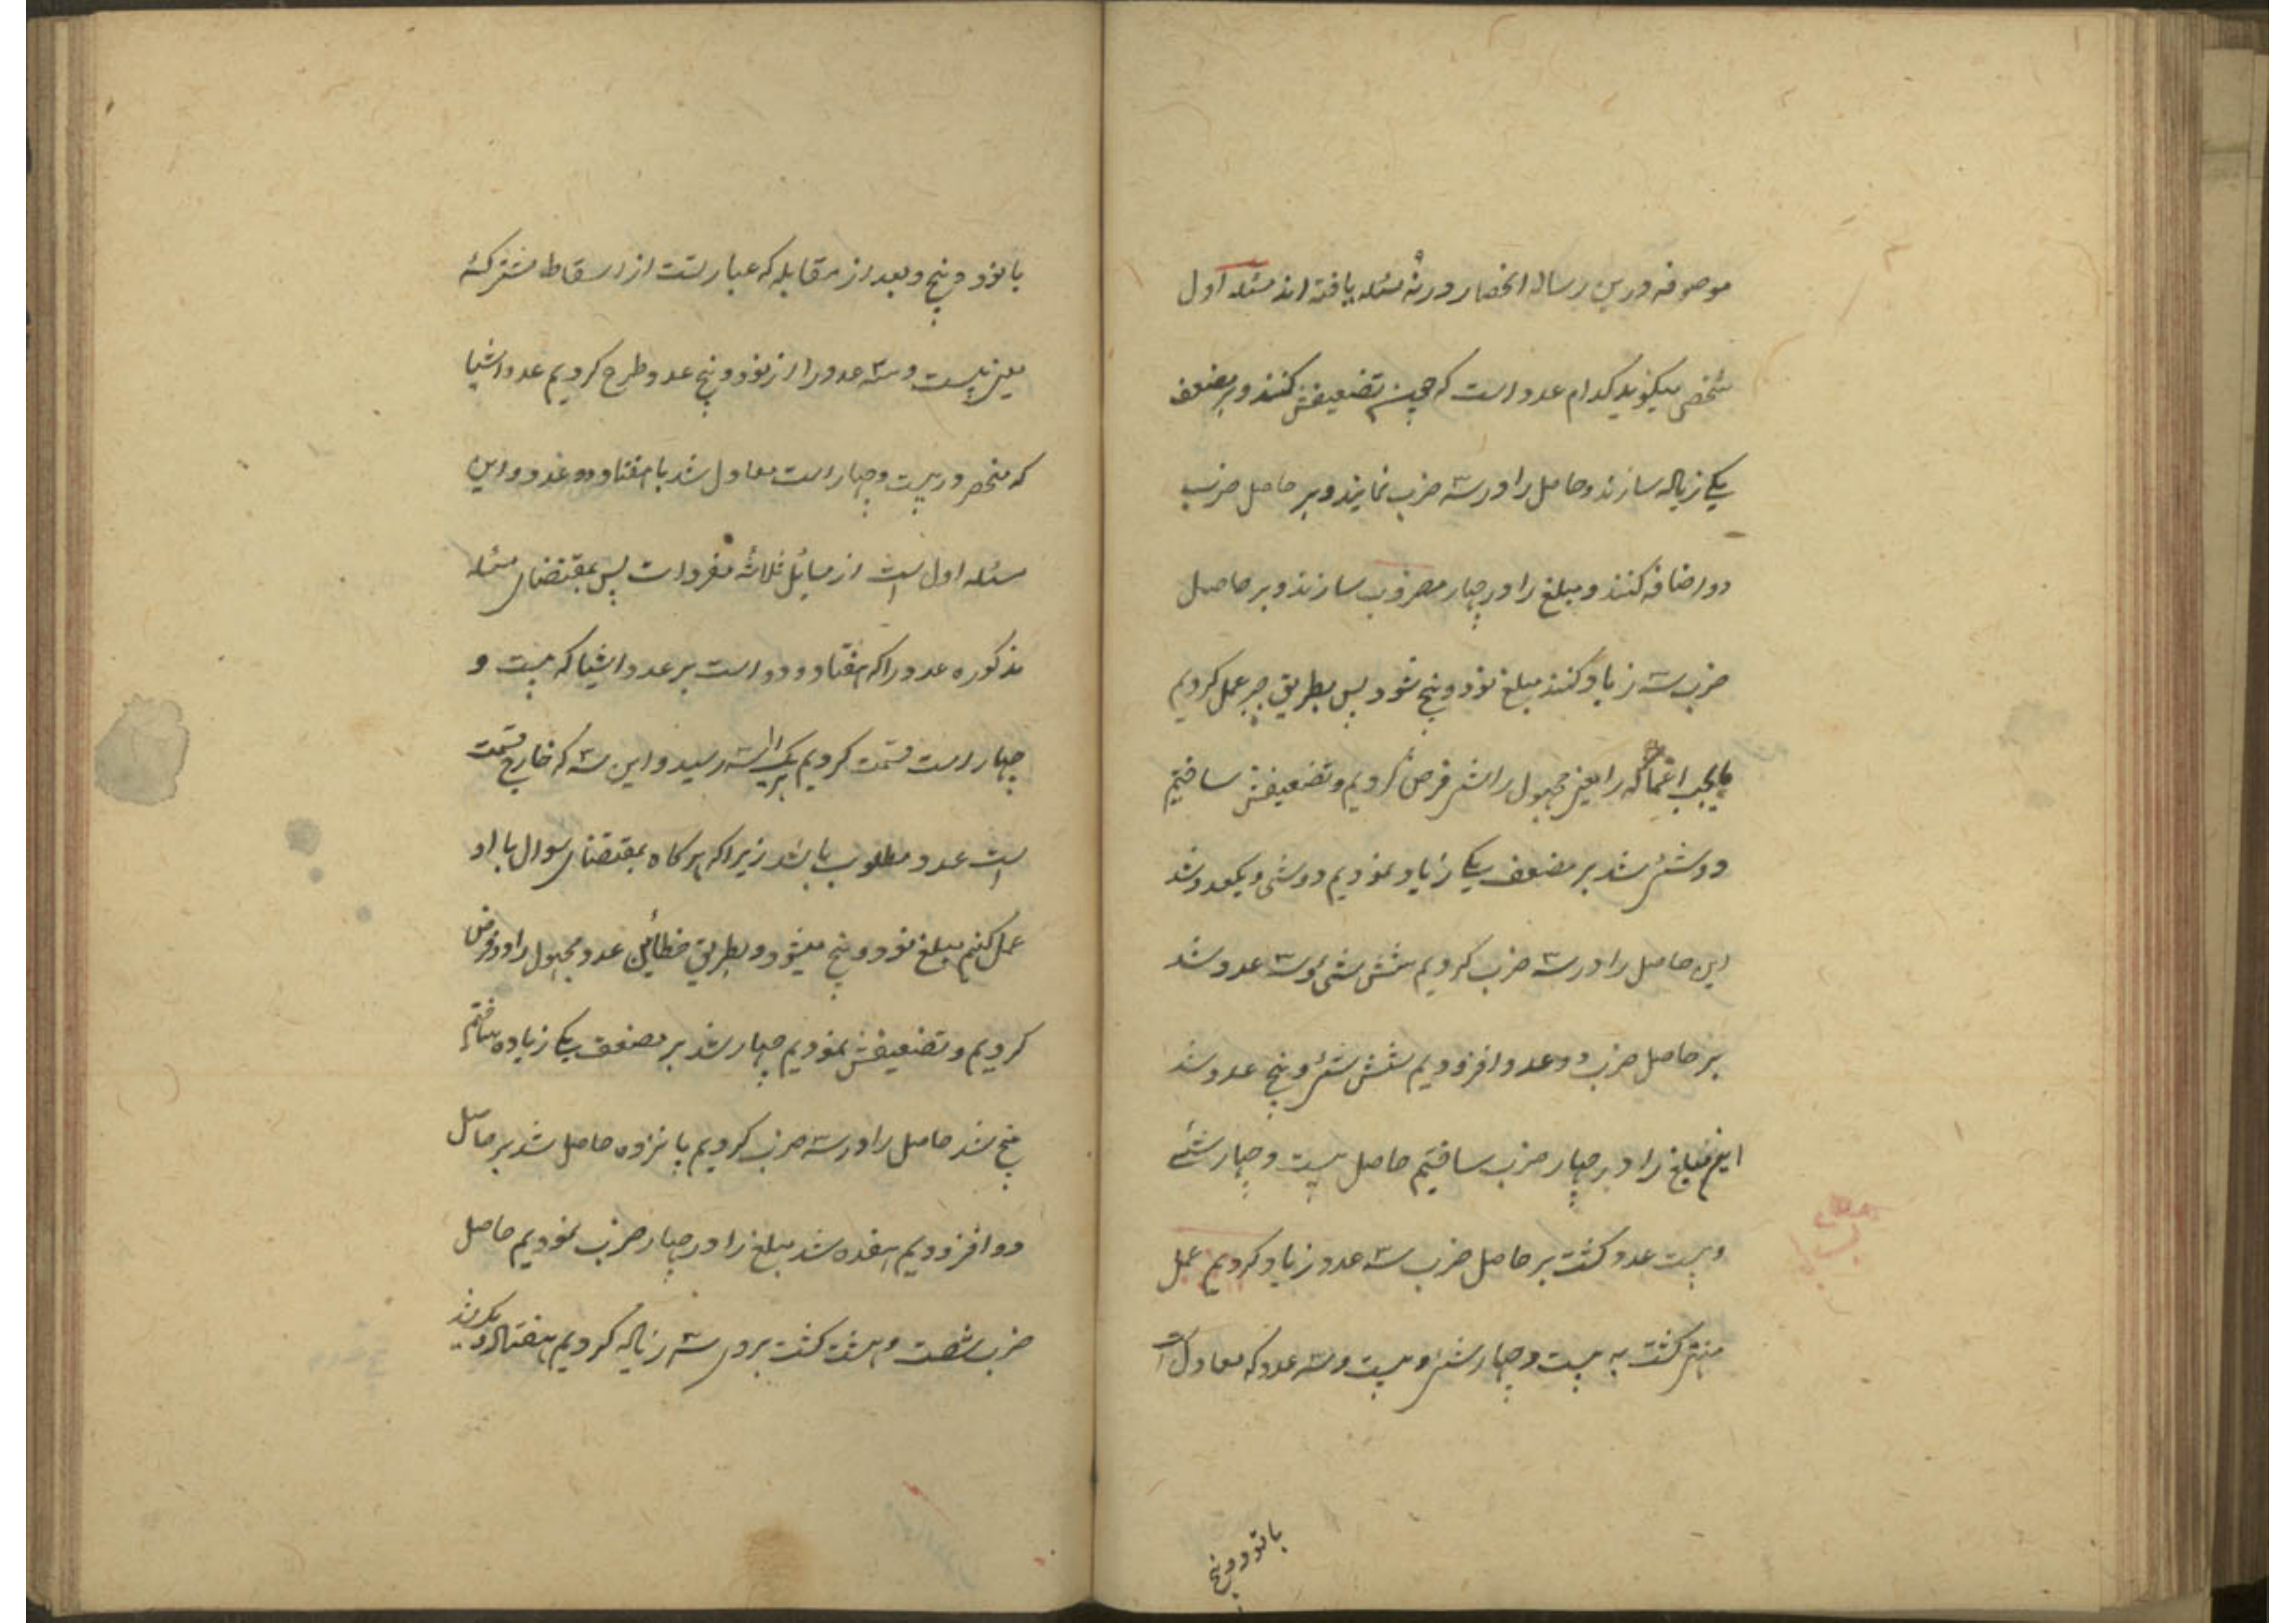 موصوفه درین رساله انحصار در نه مسئله یافته اند مسئله اول
شخصی میگوید کدام عدد است که چون تضعیفش کنند و بر مضعف
یکی زیاله سازند و حاصل را در سه ضرب نمایند و بر حاصل ضرب
دو اضافه کنند و مبلغ را در چهار مضروب سازند و بر حاصل
ضرب سه زیاد کنند مبلغ نود و پنج شود پس بطریق جبر عمل کردیم
را یعنی مجهول را شی فرض کردیم و تضعیفش ساختیم
دو شی شد بر مضعف یکی زیاد نمودیم دو شی و یکعدد شد
این حاصل را در سه ضرب کردیم شش شی و سه عدد شد
بر حاصل ضرب دو عدد افزودیم شش شی و پنج عدد شد
این مبلغ را در چهار ضرب ساختیم حاصل بیست و چهار شئ
و بیست عدد گشت بر حاصل ضرب سه عدد زیاد کردیم عمل
منتهی گشت به بیست و چهار شی و بیست و سه عدد که معادل است
با نود و پنج
با نود و پنج و بعد از مقابله که عبارتست از اسقاط مشترکه
یعنی بیست و سه عدد را از نود و پنج عدد طرح کردیم عدد اشیا
که منحصر در بیست و چهار است معادل شد با هفتاد و دو عدد و این
مسئله اول است از مسائل ثلاثه مفردات پس بمقتضای مسئله
مذکوره عدد را که هفتاد و دو است بر عدد اشیا که بیست و
چهار است قسمت کردیم هر یک را سه رسید و این سه که خارج قسمت
است عدد مطلوب باشد زیرا که هر گاه بمقتضای سوال با او
عمل کنیم مبلغ نود و پنج میشود و بطریق خطائین عدد مجهول را دو فرض
کردیم و تضعیفش نمودیم چهار شد بر مضعف یکی زیاده ساختیم
پنج شد حاصل را در سه ضرب کردیم پانزده حاصل شد بر حاصل
دو افزودیم هفده شد مبلغ را در چهار ضرب نمودیم حاصل
ضرب شصت و هشت گشت بروی سه زیاله کردیم هفتاد و یک شد